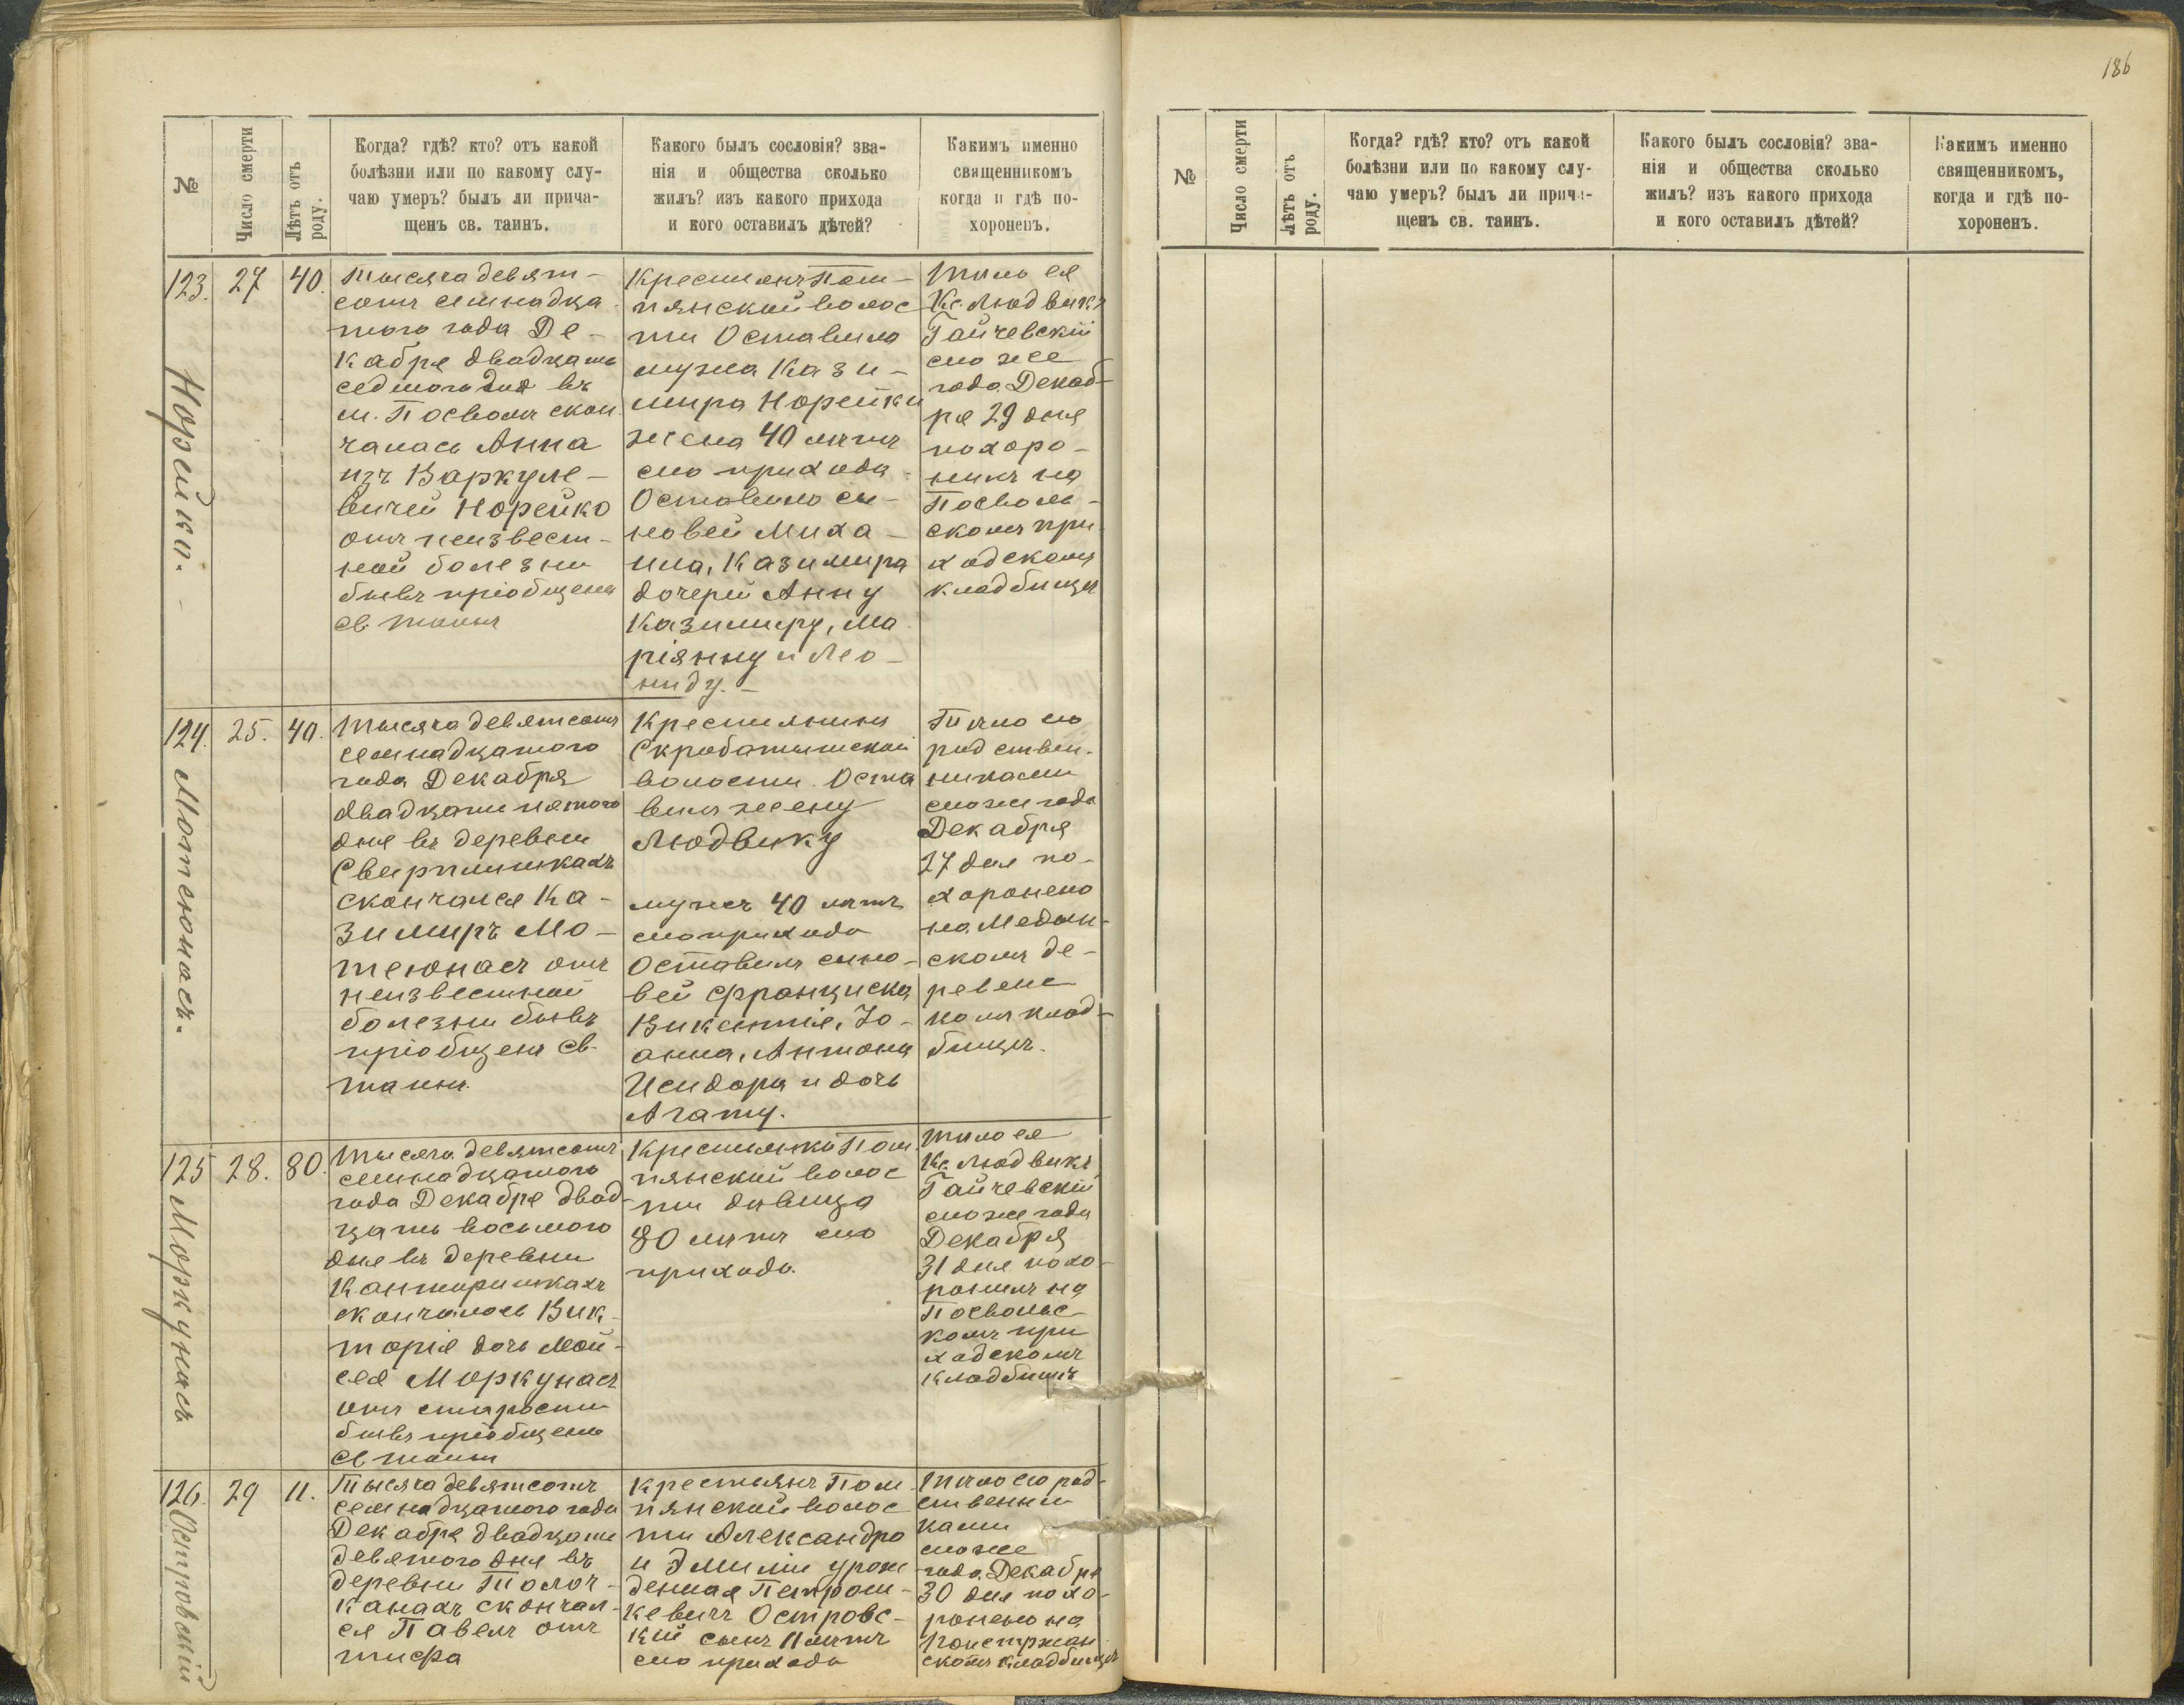 186
№
Число смерти
Лѣтъ отъ
роду.
Когда? гдѣ? кто? отъ какой
болѣзни или по какому слу-
чаю умеръ? былъ ли прича-
щенъ св. таинъ.
Какого былъ сословія? зва-
нія и общества сколько
жилъ? изъ какого прихода
и кого оставилъ дѣтей?
Какимъ именно
священникомъ
когда и гдѣ по-
хороненъ.
123.
Норейко.
27
40.
Тысяча девят-
сотъ семнадца
того года Де-
кабря двадцать
седмого дня въ
м. Посволѣ скон
чалась Анна
изъ Варкуле-
вичей Норейко
отъ неизвест-
ной болезни
бывъ пріобщена
св. таинъ
Крестьянъ Пом-
пянской волос
ти Оставила
мужа Кази-
мира Норейки
жена 40 лѣтъ
сего прихода
Оставила сы-
новей Миха-
ила, Казимира
дочерей Анну
Казимиру, Ма
ріянну и Лео-
ниду.-
Тѣло ея
Кс. Людвикъ
Гайчевскій
сего же
года Декаб-
ря 29 дня
похоро-
нилъ на
Посволь-
скомъ при
ходскомъ
кладбищѣ
124.
Мотеюнасъ.
25.
40.
Тысяча девятсотъ
семнадцатого
года Декабря
двадцати пятого
дня въ деревни
скончался Ка-
зимиръ Мо-
теюнасъ отъ
неизвестной
болезни бывъ
пріобщенъ св.
таинъ.
Крестьянинъ
волости. Оста
вилъ жену
Людвику
мужъ 40 лѣтъ
сего прихода
Оставилъ сыно-
вей Франциска
Викентія, Іо-
анна, Антона
Исидора и дочь
Агату.
Тѣло его
родствен-
никами
сего же года
Декабря
27 дня по-
хоронено
на
скомъ де-
ревенс
комъ клад-
бищѣ.
125
Моркунасъ
28.
80.
Тысяча девятсотъ
семнадцатого
года Декабря двад-
цать восьмого
дня въ деревни
скончалась Вик-
торія дочь Мой-
сея Моркунасъ
отъ старости
бывъ пріобщена
св. таинъ
Крестьянка Пом
пянской волос
ти дѣвица
80 лѣтъ сего
прихода.
Тѣло ея
Кс. Людвикъ
Гайчевскій
сего же года
Декабря
31 дня похо-
ронилъ на
Посвольс-
комъ при
ходскомъ
кладбищѣ
126.
Островскій
29
11.
Тысяча девятсотъ
семнадцатого года
Декабря двадцати
девятого дня въ
деревни Толоч-
канахъ скончал-
ся Павелъ отъ
тифа
Крестьянъ Пом
пянской волос
ти Александра
и Эмиліи урож
денная Петраш-
кевичъ Островс-
кій сынъ 11 лѣтъ
сего прихода
Тѣло его род-
ственни
ками
сего же
года Декабря
30 дня похо-
ронено на
скомъ кладбищѣ
№
Число смерти
Лѣтъ отъ
роду.
Когда? гдѣ? кто? отъ какой
болѣзни или по какому слу-
чаю умеръ? былъ ли прича-
щенъ св. таинъ.
Какого былъ сословія? зва-
нія и общества сколько
жилъ? изъ какого прихода
и кого оставилъ дѣтей?
Какимъ именно
священникомъ,
когда и гдѣ по-
хороненъ.